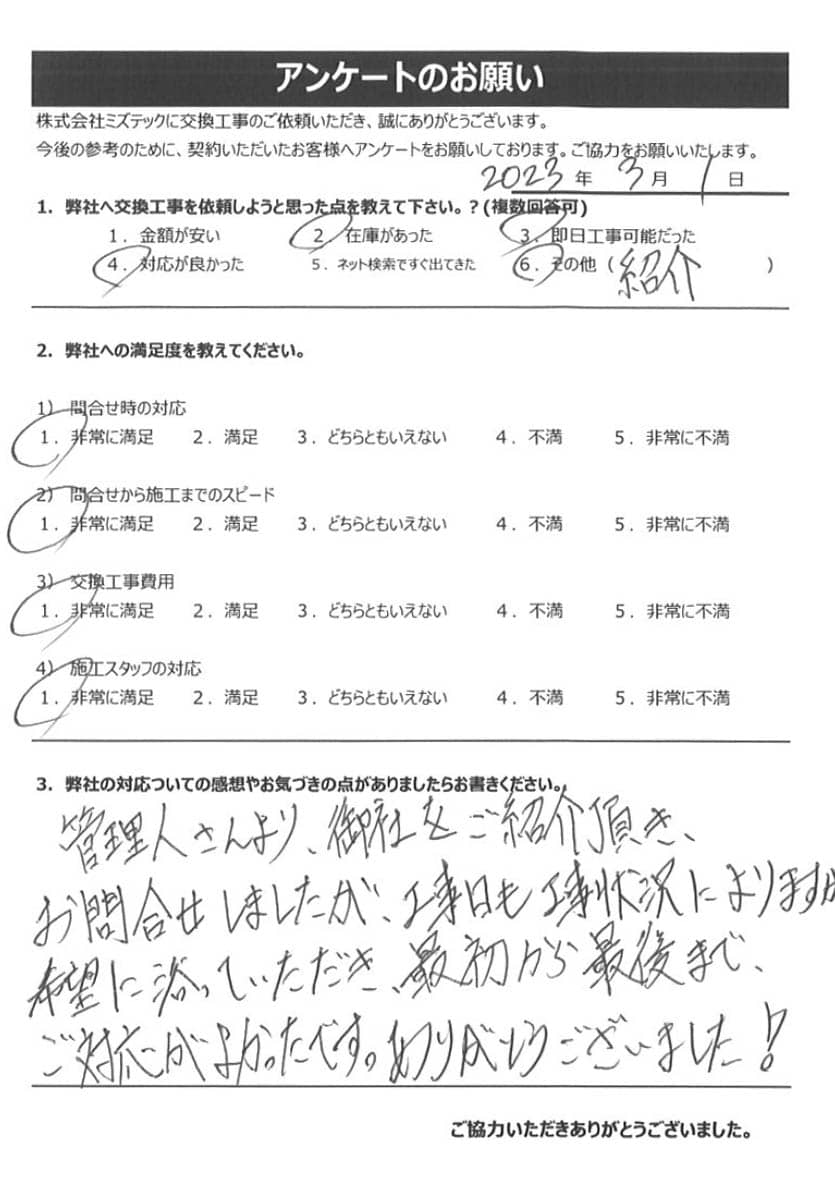 アンケートのお願い
株式会社ミズテックに交換工事のご依頼いただき、誠にありがとうございます。
今後の参考のために、契約いただいたお客様へアンケートをお願いしております。ご協力をお願いいたします。
2023 年 3 月 1 日
1．弊社へ交換工事を依頼しようと思った点を教えて下さい。？(複数回答可)
1．金額が安い 2．在庫があった 3．即日工事可能だった
4．対応が良かった 5．ネット検索ですぐ出てきた 6．その他（紹介 ）
2．弊社への満足度を教えてください。
1） 問合せ時の対応
1．非常に満足 2．満足 3．どちらともいえない 4．不満 5．非常に不満
2） 問合せから施工までのスピード
1．非常に満足 2．満足 3．どちらともいえない 4．不満 5．非常に不満
3） 交換工事費用
1．非常に満足 2．満足 3．どちらともいえない 4．不満 5．非常に不満
4） 施工スタッフの対応
1．非常に満足 2．満足 3．どちらともいえない 4．不満 5．非常に不満
3．弊社の対応ついての感想やお気づきの点がありましたらお書きください。
管理人さんより、御社をご紹介頂き、
お問合せしましたが、工事日も工事状況によりますが
希望に添っていただき、最初から最後まで、
ご対応がよかったです。ありがとうございました！
ご協力いただきありがとうございました。